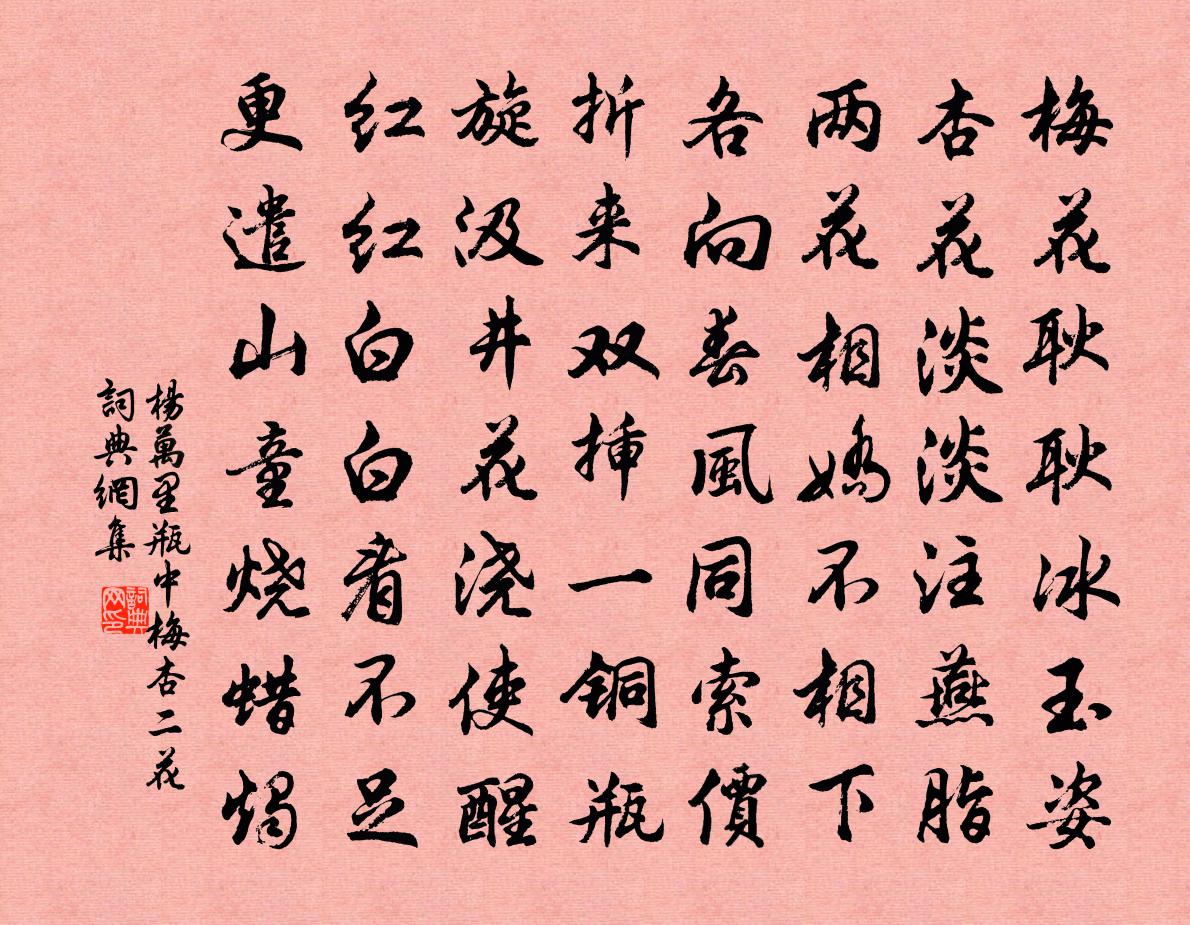 梅花耿耿冰玉姿
杏花淡淡注燕脂
两花相娇不相下
各向春風同索價
折来双插一铜瓶
旋汲井花浇使醒
红红白白看不足
更遣山童烧蜡烛
楊萬里瓶中梅杏二花
詞典網集
詞典网印